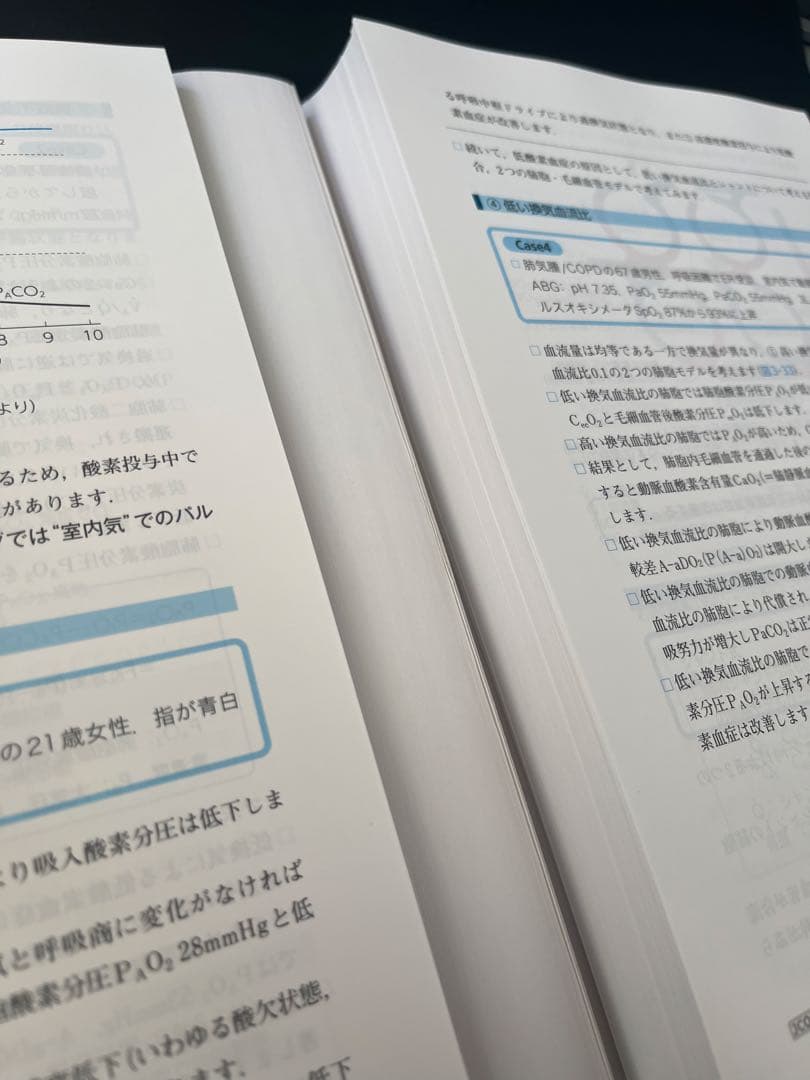 PACO₂
8 9 10
より)
るため，酸素投与中で
があります．
では“室内気”でのパル
の21歳女性．指が青白
より吸入酸素分圧は低下しま
と呼吸商に変化がなければ
胞酸素分圧PAO₂ 28mmHgと低
低下(いわゆる酸欠状態，
ます．
低下
る呼吸中枢ドライブにより過換気状態となり，また
素血症が改善します．
□続いて，低酸素血症の原因として，低い換気血流比とシャントについて考える
合，2つの肺胞・毛細血管モデルで考えてみます
④ 低い換気血流比
Case4
□肺気腫/COPDの67歳男性．呼吸困難でER受診．室内気で
ABG：pH 7.35，PaO₂ 55mmHg，PaCO₂ 55mmHg
ルスオキシメータSpO₂ 87%から93%に上昇
□血流量は均等である一方で換気量が異なり，①高い換
血流比0.1の2つの肺胞モデルを考えます(図3-33)
□低い換気血流比の肺胞では肺胞酸素分圧PAO₂が
CecO₂と毛細血管後酸素分圧PecO₂は低下します．
□高い換気血流比の肺胞ではPAO₂が高いため，
□結果として，肺胞内毛細血管を通過した後の
すると動脈血酸素含有量CaO₂(=肺静脈血
します．
□低い換気血流比の肺胞により動脈血酸
較差A-aDO₂(P(A-a)O₂)は開大し
□低い換気血流比の肺胞での動脈
血流比の肺胞により代償され
吸努力が増大しPaCO₂は正常
□低い換気血流比の肺胞で
素分圧PAO₂が上昇する
素血症は改善します